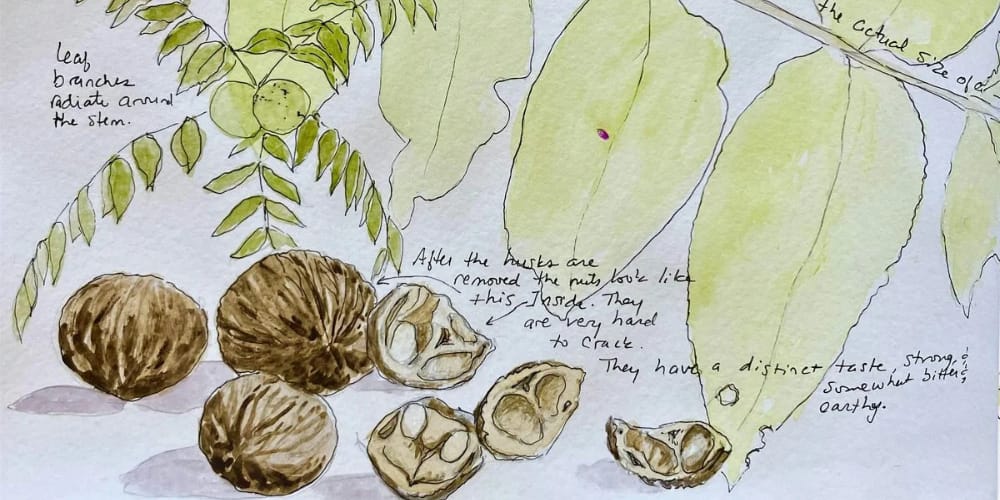 Leaf
branches
radiate around
the stem.
the actual size of a
After the husks are
removed the nuts look like
this Inside. They
are very hard
to crack.
They have a distinct taste, strong,
somewhat bitter &
earthy.